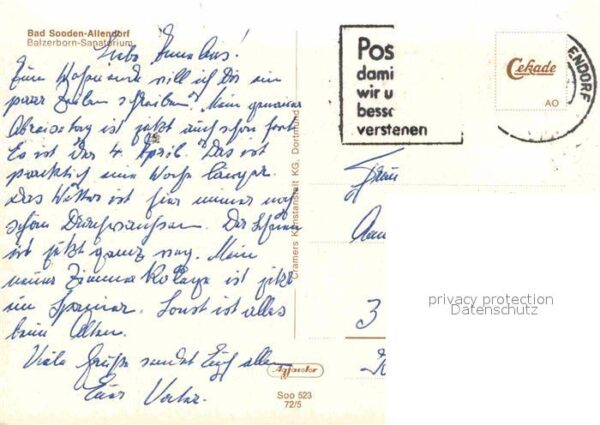 Bad Sooden-Allendorf
Balzerborn-Sanatorium
Liebe
Zum will ich Dir ein
paar Zeilen schreiben. Mein genauer
Abreisetag ist jetzt auch schon fest
Es ist der 4. April. Das ist
praktisch eine Woche länger.
Das Wetter ist hier immer noch
schön Der Schnee
ist jetzt ganz weg. Mein
neuer ist jetzt
ein Sonst ist alles
beim Alten.
Viele Grüße sendet Euch allen
Euer Vater.
Cramers Kunstanstalt KG, Dortmund
Agfacolor
Soo 523
72/5
Pos
dami
wir u
bess
verstehen
Cekade
AO
ENDORF
Frau
3
privacy protection
Datenschutz